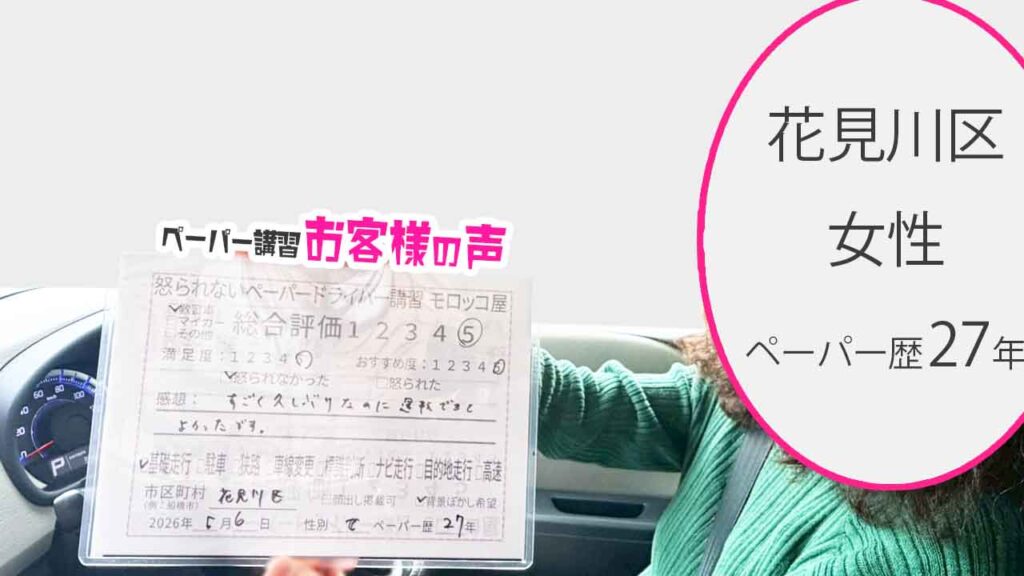 花見川区
女性
ペーパー歴27年
ペーパー講習 お客様の声
怒られないペーパードライバー講習 モロッコ屋
教習車
マイカー
その他
総合評価 1 2 3 4 5
満足度:1 2 3 4 5 おすすめ度:1 2 3 4 5
怒られなかった 怒られた
感想: すごく久しぶりなのに運転できて
よかったです。
基礎走行 駐車 狭路 車線変更 ナビ走行 目的地走行 高速
市区町村 花見川区 顔出し掲載可 背景ぼかし希望
(例:船橋市)
2026年 5月6日 性別 女 ペーパー歴 27年